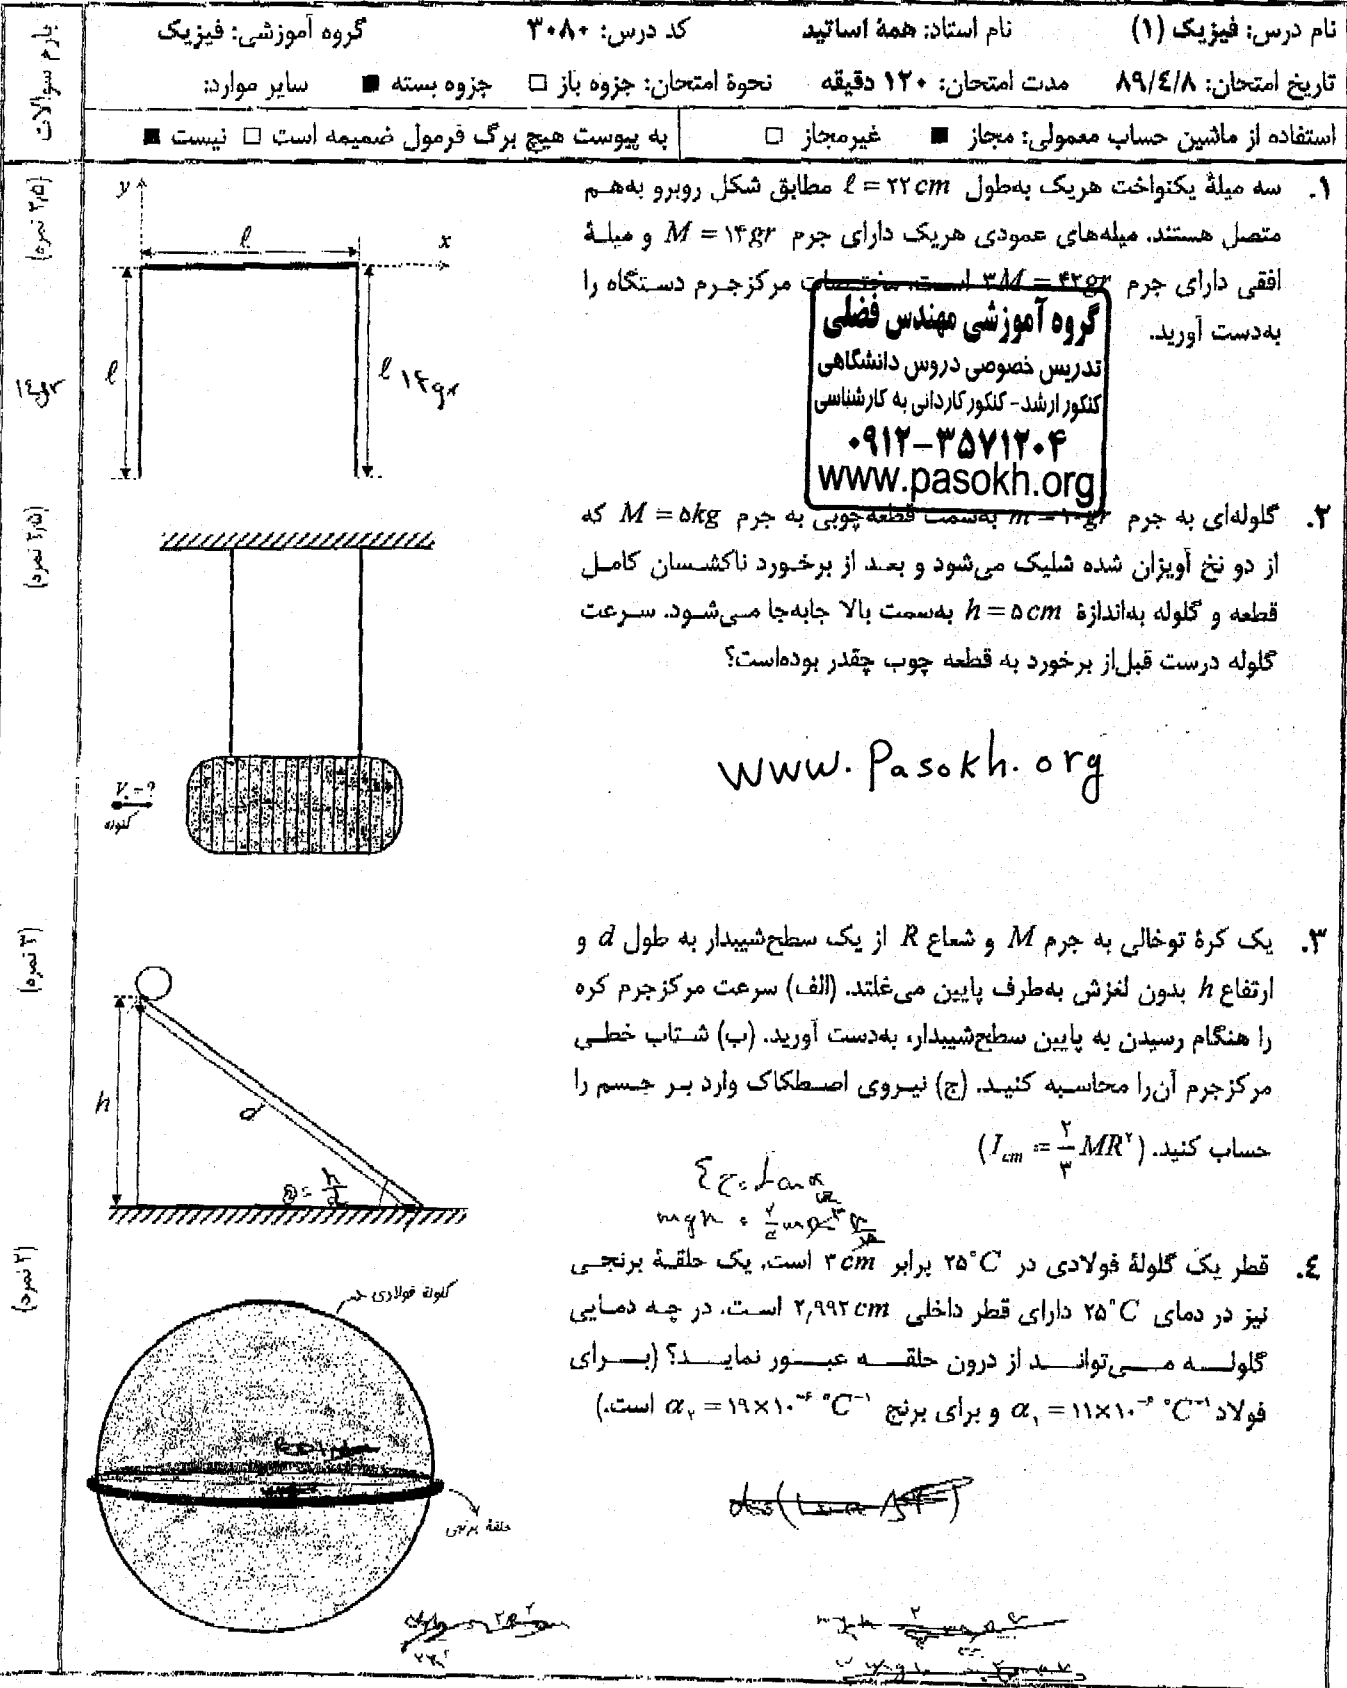 نام درس: فیزیک (۱) نام استاد: همهٔ اساتید کد درس: ۳۰۸۰ گروه آموزشی: فیزیک
تاریخ امتحان: ۸۹/٤/۸ مدت امتحان: ۱۲۰ دقیقه نحوهٔ امتحان: جزوه باز □ جزوه بسته ■ سایر موارد:
استفاده از ماشین حساب معمولی: مجاز ■ غیرمجاز □ به پیوست هیچ برگ فرمول ضمیمه است □ نیست ■
بارم سوالات
۱. سه میلهٔ یکنواخت هریک به‌طول ℓ = ۲۲ cm مطابق شکل روبرو به‌هم
متصل هستند. میله‌های عمودی هریک دارای جرم M = ۱۴ gr و میلهٔ
افقی دارای جرم ۳M = ۴۲ gr است. مختصات مرکزجرم دستگاه را
به‌دست آورید.
(۲٫۵ نمره)
y
ℓ
x
ℓ
ℓ ۱۴gr
گروه آموزشی مهندس فضلی
تدریس خصوصی دروس دانشگاهی
کنکور ارشد- کنکور کاردانی به کارشناسی
۰۹۱۲-۳۵۷۱۲۰۴
www.pasokh.org
۲. گلوله‌ای به جرم m = ۱۰ gr به‌سمت قطعه‌چوبی به جرم M = ۵kg که
از دو نخ آویزان شده شلیک می‌شود و بعد از برخورد ناکشسان کامل
قطعه و گلوله به‌اندازهٔ h = ۵ cm به‌سمت بالا جابه‌جا می‌شود. سرعت
گلوله درست قبل‌از برخورد به قطعه چوب چقدر بوده‌است؟
(۲٫۵ نمره)
www.Pasokh.org
V. = ?
گلوله
۳. یک کرهٔ توخالی به جرم M و شعاع R از یک سطح‌شیبدار به طول d و
ارتفاع h بدون لغزش به‌طرف پایین می‌غلتد. (الف) سرعت مرکزجرم کره
را هنگام رسیدن به پایین سطح‌شیبدار، به‌دست آورید. (ب) شتاب خطی
مرکزجرم آن‌را محاسبه کنید. (ج) نیروی اصطکاک وارد بر جسم را
حساب کنید. (I_cm = ۲/۳ MR^۲)
(۳ نمره)
h
d
٤. قطر یک گلولهٔ فولادی در ۲۵°C برابر ۳ cm است. یک حلقهٔ برنجی
نیز در دمای ۲۵°C دارای قطر داخلی ۲٫۹۹۲ cm است. در چه دمایی
گلوله می‌تواند از درون حلقه عبور نماید؟ (برای
فولاد α₁ = ۱۱×۱۰⁻⁶ °C⁻¹ و برای برنج α₂ = ۱۹×۱۰⁻⁶ °C⁻¹ است.)
(۲ نمره)
گلولهٔ فولادی
حلقهٔ برنجی